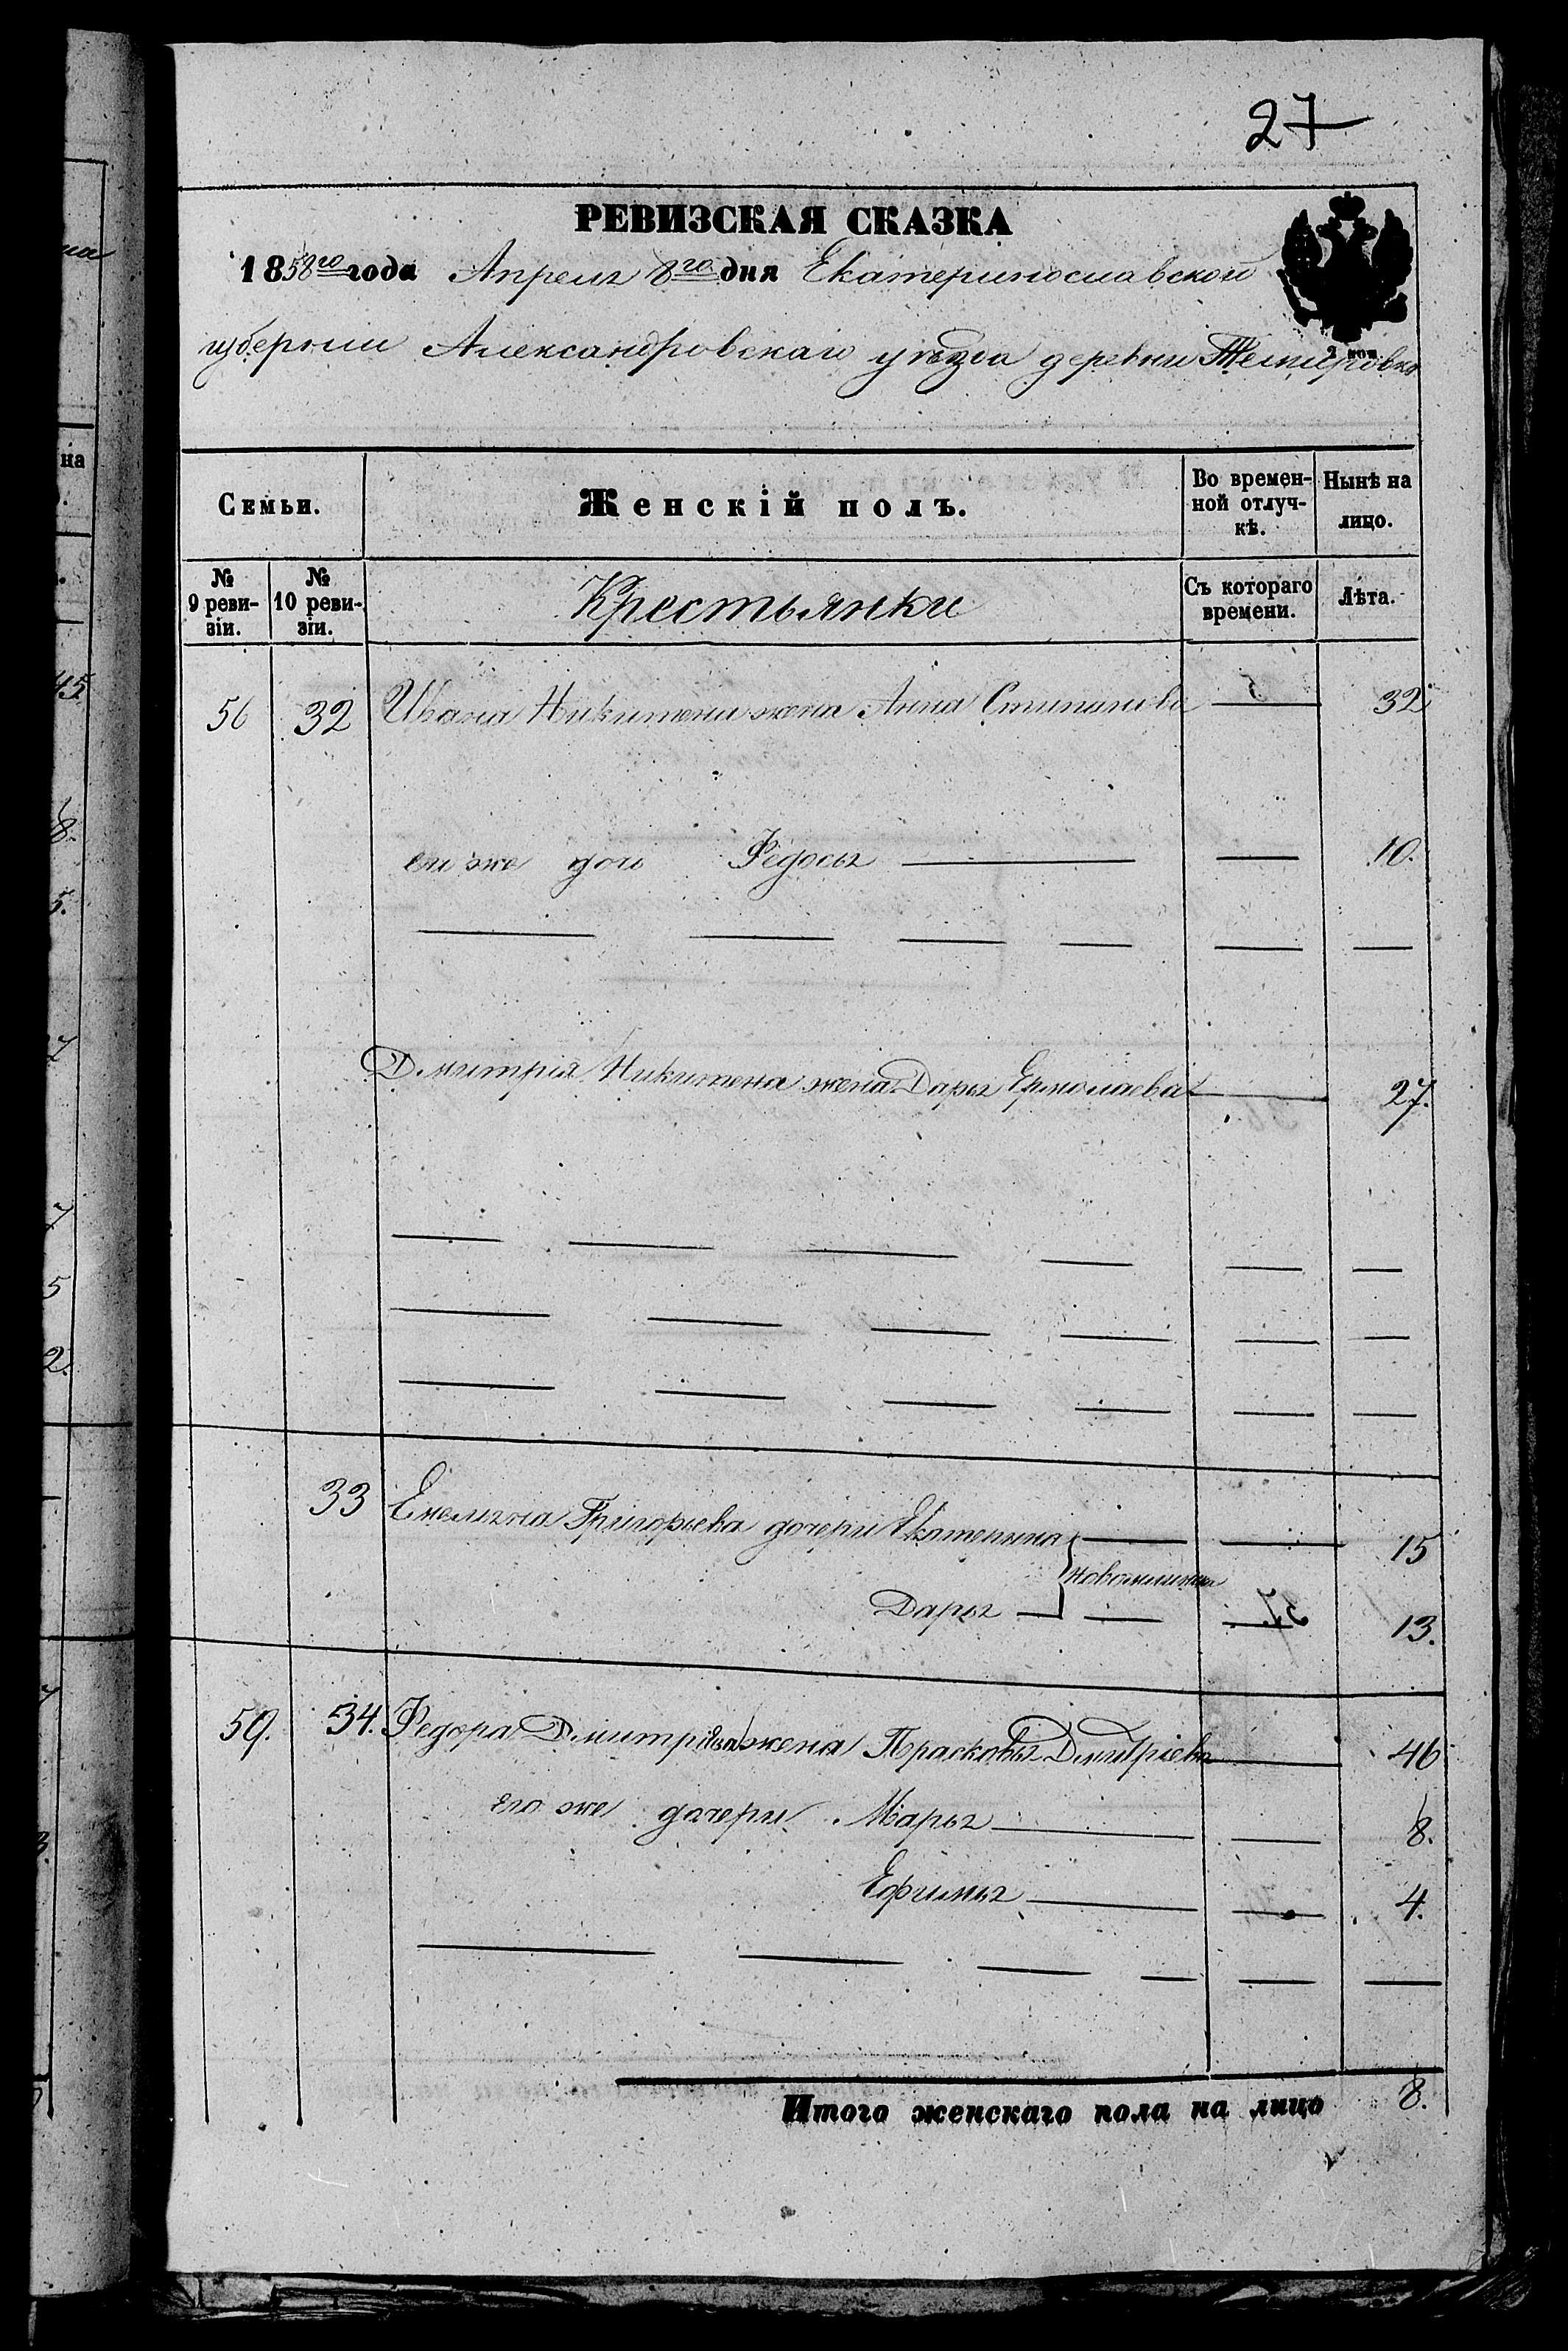 27
РЕВИЗСКАЯ СКАЗКА
1858го года Апреля 8го дня Екатеринославской
губернии Александровскаго уезда деревни Темировки
Семьи.
Женскій полъ.
Во времен-
ной отлуч-
кѣ.
Нынѣ на
лицо.
№
9 реви-
зіи.
№
10 реви-
зіи.
Крестьянки
Съ котораго
времени.
Лѣта.
56 32 Ивана Никитена жена Анна Стипанова 32
его же дочь Федосья 10.
Дмитрія Никитена жена Дарья Ермолаева 27.
33 Емельяна Григорьева дочери Екатерина 15
Дарья 13.
59. 34. Федора Дмитріева жена Прасковья Дмитріева 46
его же дочери Марья 8.
Ефимья 4.
Итого женскаго пола на лицо 8.